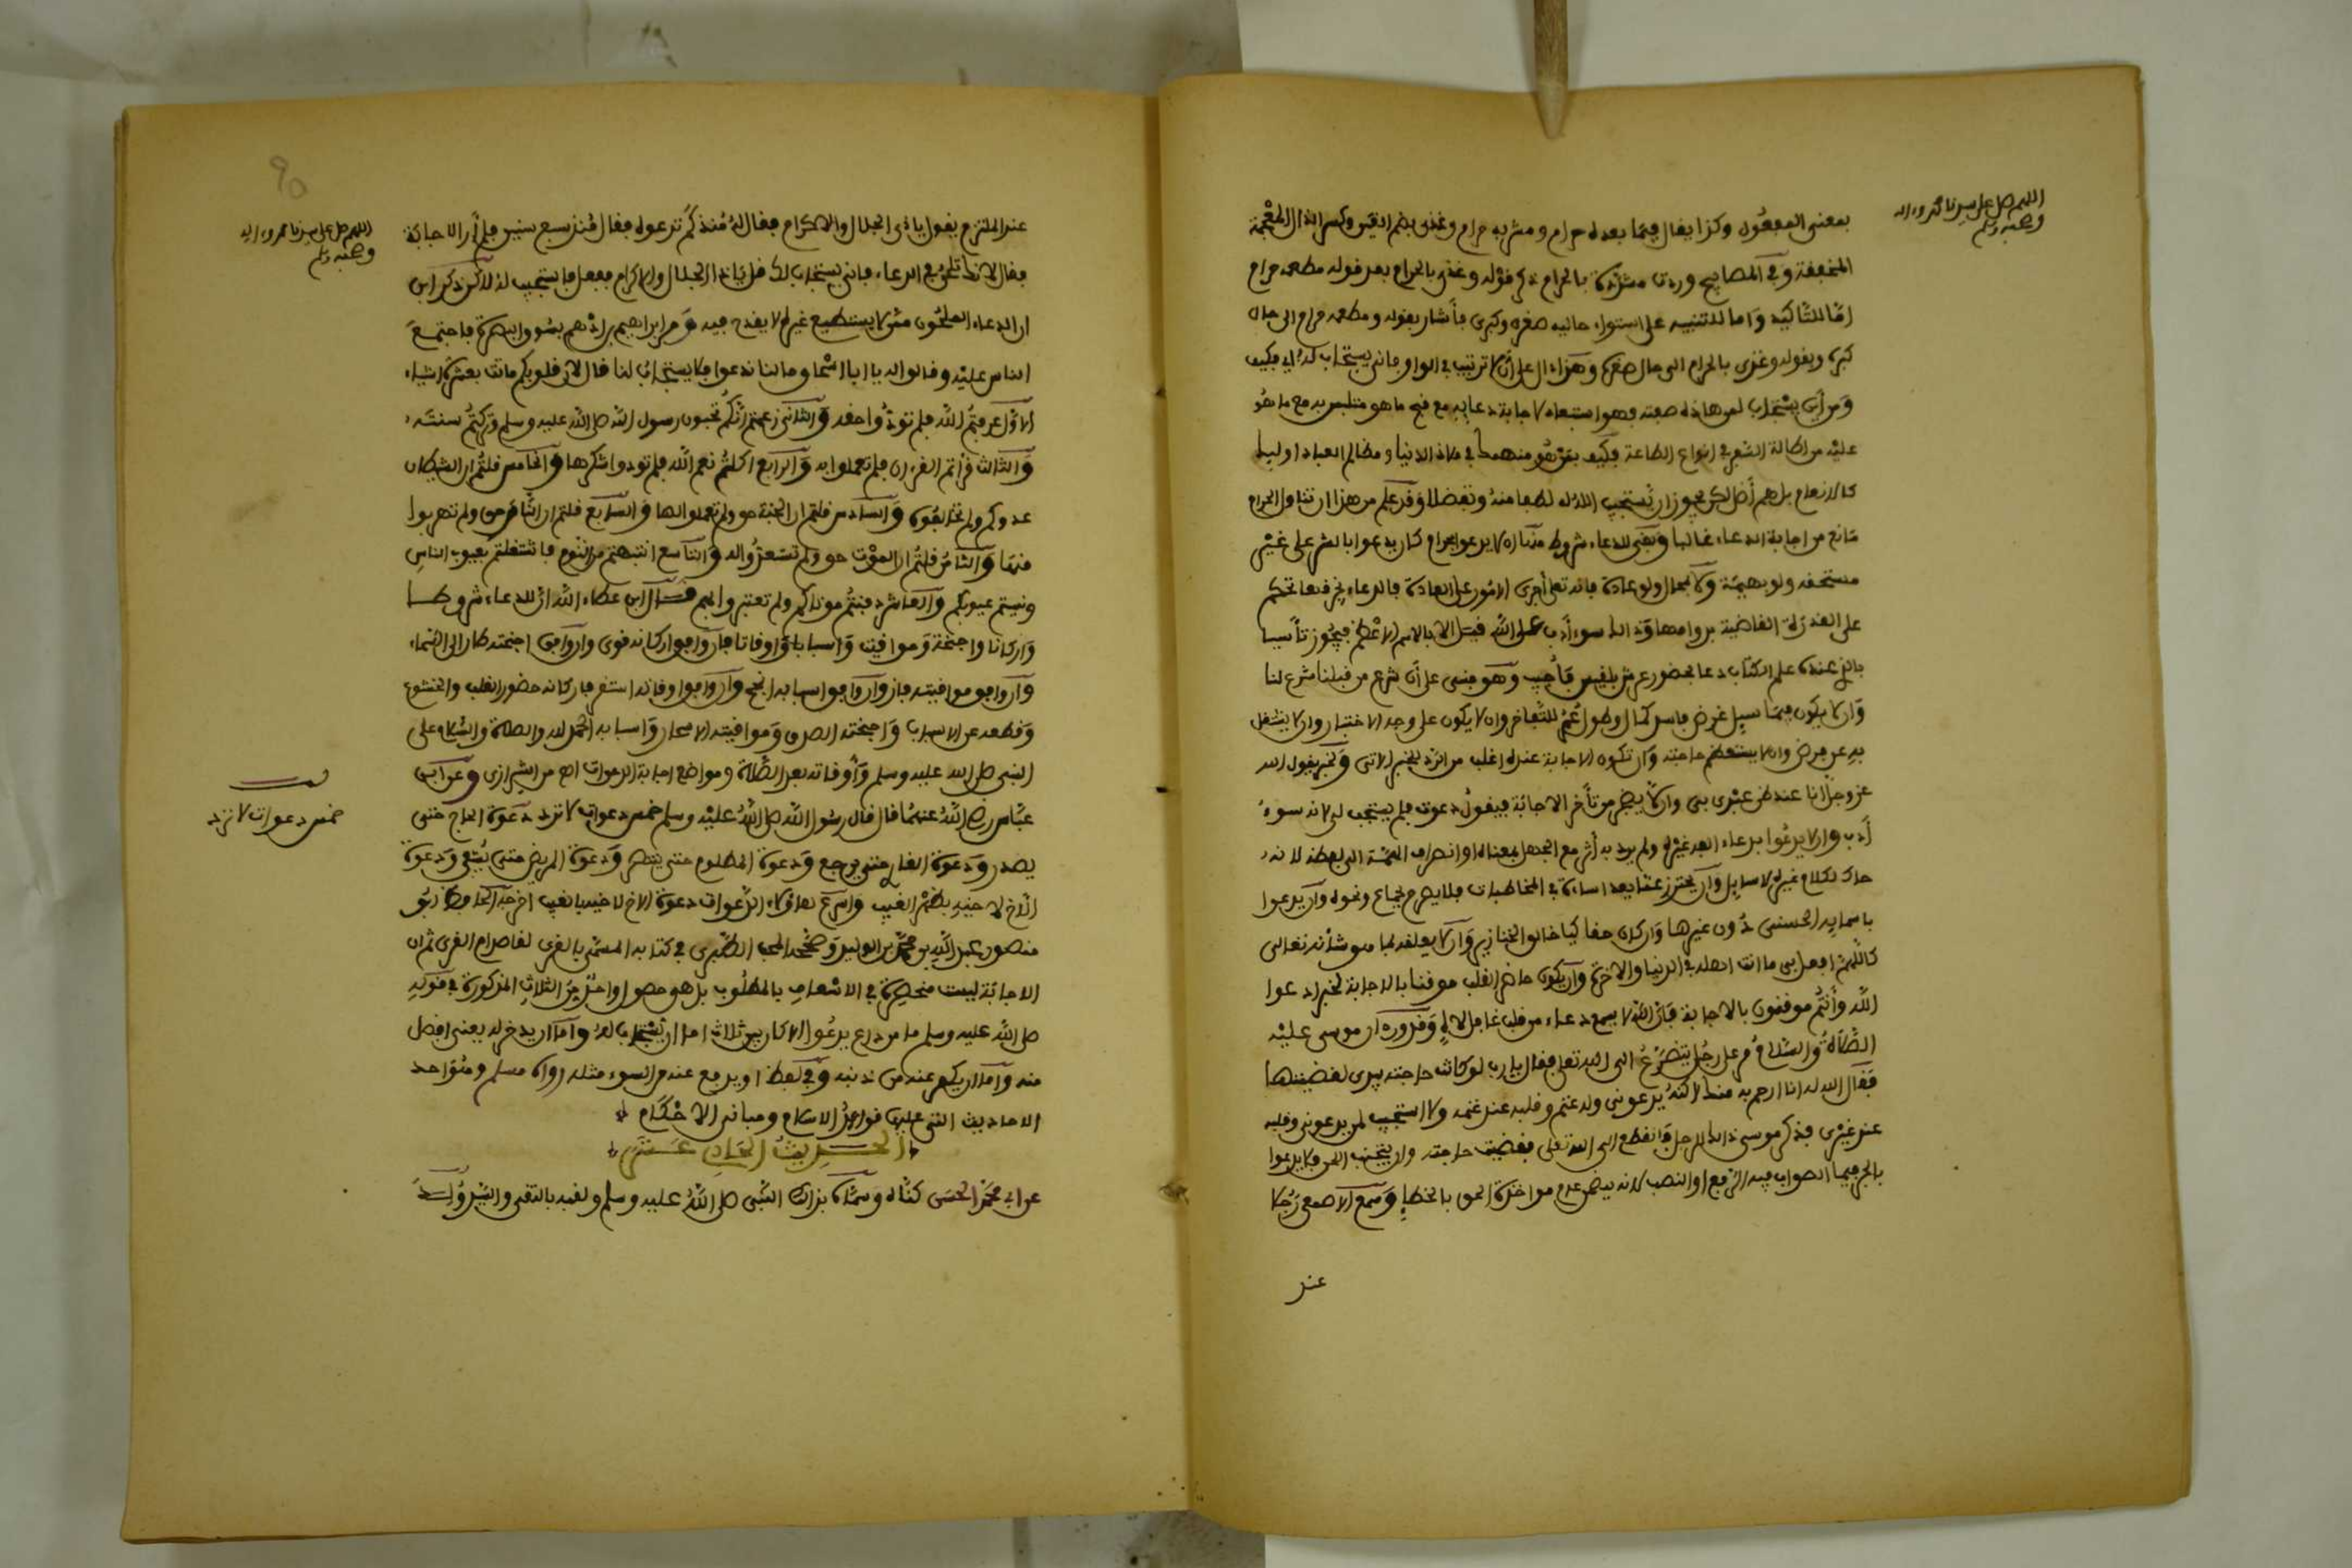 اللهم صل على سيدنا محمد وءاله
وصحبه وسلم
بمعنى المفعول وكذا يقال فيما بعده حرام ومشربه حرام وغذي بضم الغين وكسر الذال المعجمة
المخففة وفي المصابيح وردت مشددة بالحرام ذكر قوله وغذي بالحرام بعد قوله مطعمه حرام
إما للتأكيد وإما للتنبيه على استواء حاليه صغره وكبره فأشار بقوله ومطعمه حرام الى حال
كبره وبقوله وغذي بالحرام الى حال صغره وهذا دال على أن لا ترتيب في الواو فأنى يستجاب له أي فكيف
ومن أين يستجاب لمن هاذه صفته فهو استبعاد لاجابة دعائه مع قبح ما هو متلبس به مع ما هو
عليه من اطالة السفر في انواع الطاعة فكيف بمن هو منهمك في ملاذ الدنيا ومظالم العباد اوليك
كالانعام بل هم أضل لكن يجوز ان يستجيب الله له لطفا منه وتفضلا وقد علم من هذا ان تناول الحرام
مانع من اجابة الدعاء غالبا وبقي للدعاء شروط منها ان لا يدعو بحرام كان يدعو بالشر على غير
مستحقه ولو بهيمة ولا بمحال ولو عادة فانه تعلى أجرى الامور على العادة فالدعاء بخرقها تحكم
على القدرة القاضية بدوامها وذالك سوء أدب على الله قيل الا بالاسم الاعظم فيجوز تأسيا
بالذي عنده علم الكتاب دعا بحضور عرش بلقيس فأجيب وهو مبني على أن شرع من قبلنا شرع لنا
وان لا يكون فيما سيل غرض فاسد كمال وطول عمر للتفاخر وان لا يكون على وجه الاختبار وان لا يشتغل
به عن فرض وان لا يستعظم حاجته وان تكون الاجابة عنده اغلب من الرد للخبر الاتي وخبر يقول الله
عز وجل أنا عند ظن عبدي بي وان لا يضجر من تأخر الاجابة فيقول دعوت فلم يستجب لي لانه سوء
أدب وان لا يدعوا بدعاء الغير غيره ولم يرد به أثر مع الجهل بمعناه او انصراف الهمة الى لفظه لانه
حاك لكلام غيره لا سايل وان يحترز عما يعد اساءة في المخاطبات فلا يصرح بجماع ونحوه وان يدعوا
باسمايه الحسنى دون غيرها وان كان حقا كيا خالق الخنازير وان لا يعلقه بما هو شأنه تعالى
كاللهم افعل بي ما انت اهله في الدنيا والاخرة وان يكون حاضر القلب موقنا بالاجابة لخبر ادعوا
الله وأنتم موقنون بالاجابة فان الله لا يسمع دعاء من قلب غافل لاه وقد ورد ان موسى عليه
الصلاة والسلام مر على رجل يتضرع الى الله تعلى فقال يا رب لو كانت حاجته بيدي لقضيتها
فقال الله له انا ارحم به منك لاكنه يدعوني وله غنم وقلبه عند غنمه ولا استجيب لمن يدعوني وقلبه
عند غيري فذكر موسى ذالك للرجل فانقطع الى الله تعلى فقضيت حاجته وان يتجنب اللحن فلا يدعوا
بالجر فيما الصواب فيه الرفع او النصب لانه يضر عدم مواخذة الحق بالخطإ وسمع الاصمعي رجلا
عند
اللهم صل على سيدنا محمد وءاله
وصحبه وسلم
عند الملتزم يقول يا ذي الجلال والاكرام فقال له منذ كم تدعوه فقال منذ سبع سنين فلم أر الاجابة
فقال لانك تلحن في الدعاء فأنى يستجاب لك قل يا ذا الجلال والاكرام ففعل فاستجيب له لاكن ذكر ابن
ان الدعاء الملحون ممن لا يستطيع غيره لا يقدح فيه ومر ابراهيم بن ادهم بسوق البصرة فاجتمع
الناس عليه وقالوا له يا ابا اسحاق ما لنا ندعوا فلا يستجاب لنا قال لان قلوبكم ماتت بعشرة اشياء
الاول عرفتم الله فلم تودوا حقه والثاني زعمتم أنكم تحبون رسول الله صلى الله عليه وسلم وتركتم سنته
والثالث قرأتم القرءان فلم تعملوا به والرابع اكلتم نعم الله فلم تودوا شكرها والخامس قلتم ان الشيطان
عدوكم ولم تخالفوه والسادس قلتم ان الجنة حق ولم تعملوا لها والسابع قلتم ان النار حق ولم تهربوا
منها والثامن قلتم ان الموت حق ولم تستعدوا له والتاسع انتبهتم من النوم فاشتغلتم بعيوب الناس
ونسيتم عيوبكم والعاشر دفنتم موتاكم ولم تعتبروا بهم قال ابن عطاء الله ان للدعاء شروطا
واركانا واجنحة ومواقيت واسبابا واوقاتا فان وافق اركانه قوي وان وافق اجنحته طار الى السماء
وان وافق مواقيته فاز وان وافق اسبابه انجح وان وافق اوقاته استقر فاركانه حضور القلب والخشوع
وقطعه عن الاسباب واجنحته الصدق ومواقيته الاسحار واسبابه الحمد لله والصلاة والسلام على
النبي صلى الله عليه وسلم وأوقاته بعد الصلاة ومواضع اجابة الدعوات اهـ من الشيرازي وعن ابن
عباس رضي الله عنهما قال قال رسول الله صلى الله عليه وسلم خمس دعوات لا ترد دعوة الحاج حتى
يصدر ودعوة الغازي حتى يرجع ودعوة المظلوم حتى ينتصر ودعوة المريض حتى يشفى ودعوة
الاخ لاخيه بظهر الغيب واسرع هاؤلاء الدعوات دعوة الاخ لاخيه بالغيب اخرجه الحافظ ابو
منصور عبد الله بن محمد بن الوليد وصححه المحب الطبري في كتابه المسمى بالقرى لقاصد ام القرى ثم ان
الاجابة ليست منحصرة في الاسعاف بالمطلوب بل هو حصول واحد من الثلاث المذكورة في قوله
صلى الله عليه وسلم ما من داع يدعوا الا كان بين ثلاث اما ان يستجاب له واما ان يدخر له يعني افضل
منه واما ان يكفر عنه من ذنبه وفي لفظ او يدفع عنه من السوء مثله رواه مسلم وهو احد
الاحاديث التي عليها قواعد الاسلام ومباني الاحكام
الحديث الحادي عشر
عن ابي محمد الحسن كناه وسماه بذالك النبي صلى الله عليه وسلم ولقبه بالتقي والسيد
خمس دعوات لا ترد